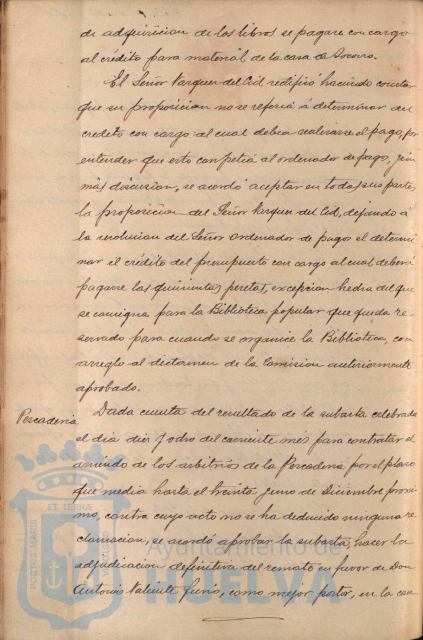 de adquisicion de los libros se pagare con cargo
al crédito para material de la casa de Socorro.
El Señor Vazquez del Cid rectificó haciendo constar
que su proposicion no se referia á determinar del
credito con cargo al cual debia realizarse el pago, por
entender que esto competia al ordenador de pago, y sin
mas discusion, se acordó aceptar en todas sus partes
la proposicion del Señor Vazquez del Cid, dejando á
la resolucion del Señor Ordenador de pagos el determi
nar el crédito del presupuesto con cargo al cual deberá
pagarse las quinientas pesetas, excepcion hecha del que
se consigna para la Biblioteca popular que queda re-
servado para cuando se organice la Biblioteca, con
arreglo al dictamen de la Comision anteriormente
aprobado.
Pescaderia
Dada cuenta del resultado de la subasta celebrada
el dia diez y ocho del corriente mes para contratar el
arriendo de los arbitrios de la Pescaderia, por el plazo
que media hasta el treinta y uno de Diciembre proxi
mo, contra cuyo acto no se ha deducido ninguna re
clamacion, se acordó aprobar la subasta, hacer la
adjudicacion definitiva del remate en favor de Don
Antonio Valiente, como mejor postor, en la can
ET TERRA
PORTUS MARIS
Ayuntamiento de
HUELVA